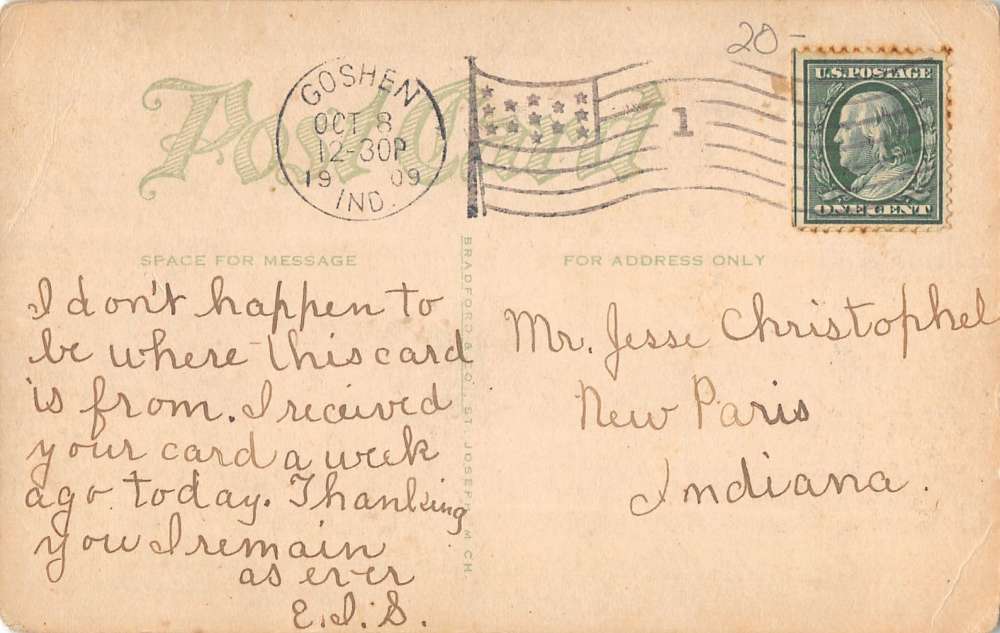 20-
Post Card
GOSHEN
OCT 8
12-30P
1909
IND.
1
U.S. POSTAGE
ONE CENT
SPACE FOR MESSAGE
FOR ADDRESS ONLY
BRADFORD & CO., ST. JOSEPH, MICH.
I don't happen to
be where this card
is from. I received
your card a week
ago today. Thanking
you I remain
as ever
E.I.S.
Mr. Jesse Christophel
New Paris
Indiana.